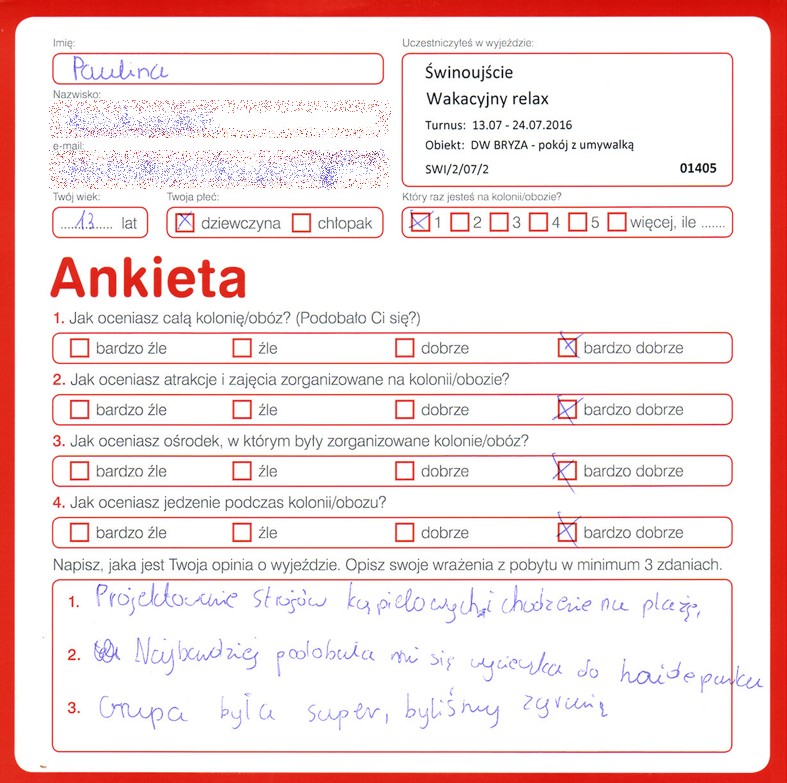 Imię:
Paulina
Uczestniczyłeś w wyjeździe:
Świnoujście
Wakacyjny relax
Turnus: 13.07 - 24.07.2016
Obiekt: DW BRYZA - pokój z umywalką
SWI/2/07/2 01405
Nazwisko:
e-mail:
Twój wiek:
.....13..... lat
Twoja płeć:
dziewczyna chłopak
Który raz jesteś na kolonii/obozie?
1 2 3 4 5 więcej, ile .......
Ankieta
1. Jak oceniasz całą kolonię/obóz? (Podobało Ci się?)
bardzo źle źle dobrze bardzo dobrze
2. Jak oceniasz atrakcje i zajęcia zorganizowane na kolonii/obozie?
bardzo źle źle dobrze bardzo dobrze
3. Jak oceniasz ośrodek, w którym były zorganizowane kolonie/obóz?
bardzo źle źle dobrze bardzo dobrze
4. Jak oceniasz jedzenie podczas kolonii/obozu?
bardzo źle źle dobrze bardzo dobrze
Napisz, jaka jest Twoja opinia o wyjeździe. Opisz swoje wrażenia z pobytu w minimum 3 zdaniach.
1. Projektowanie strojów kąpielowych i chodzenie na plażę,
2. Najbardziej podobała mi się wycieczka do haideparku
3. Grupa była super, byliśmy zgraną